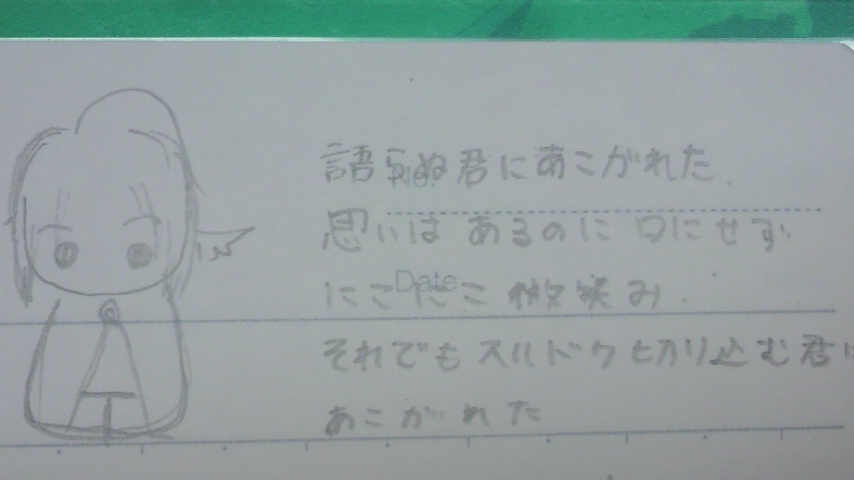 語らぬ君にあこがれた.
思いは あるのに 口にせず
Date
にこにこ 微笑み.
それでも スルドク 切り込む君に
あこがれた